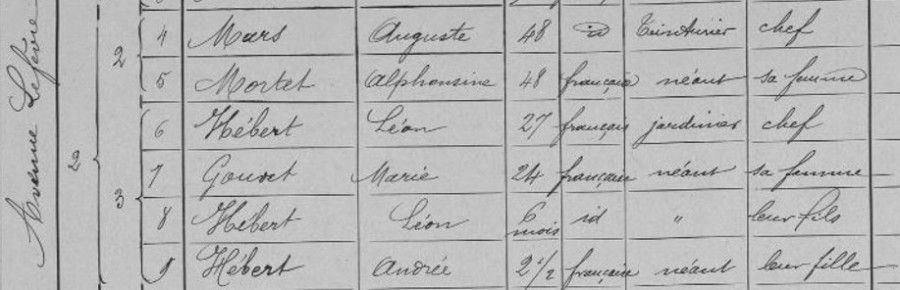 Avenue Lefèvre
2
2
3
4 Mars Auguste 48 id Teinturier chef
5 Mortet Alphonsine 48 française néant sa femme
6 Hébert Léon 27 français jardinier chef
7 Gouvet Marie 24 française néant sa femme
8 Hébert Léon 6 mois id " leur fils
9 Hébert Andrée 2 1/2 française néant leur fille